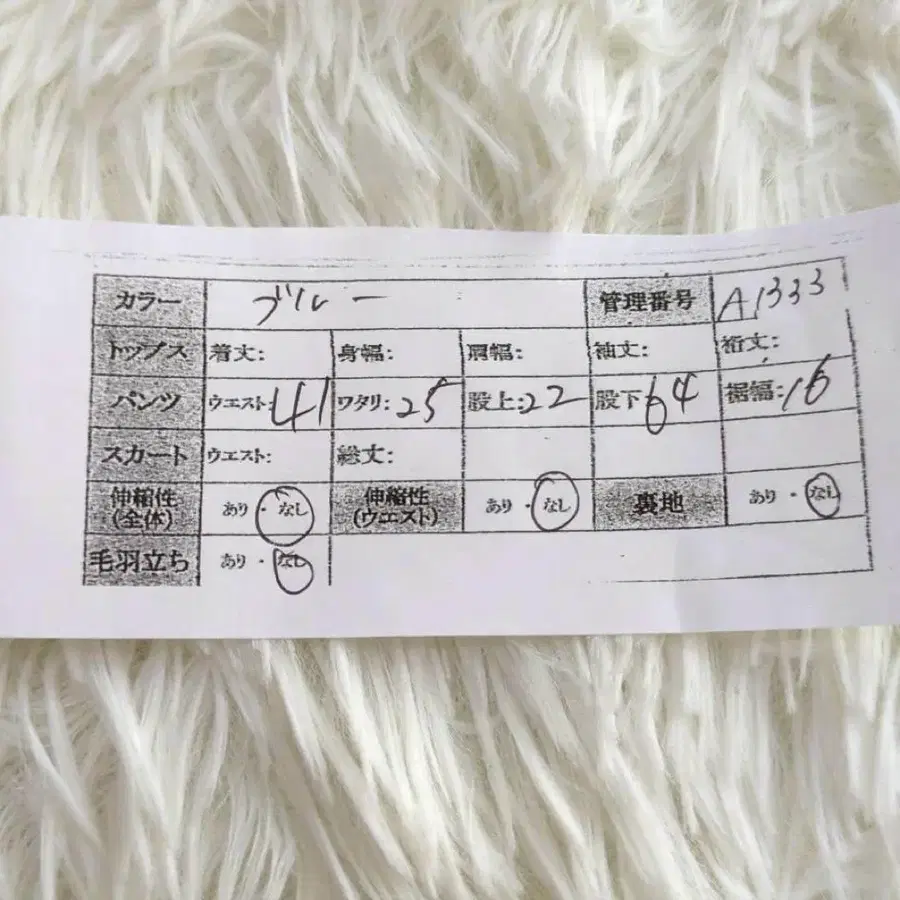 カラー ブルー 管理番号 A1333
トップス 着丈: 身幅: 肩幅: 袖丈: 裄丈:
パンツ ウエスト:41 ワタリ:25 股上:22 股下64 裾幅:16
スカート ウエスト: 総丈:
伸縮性(全体) あり・なし 伸縮性(ウエスト) あり・なし 裏地 あり・なし
毛羽立ち あり・なし